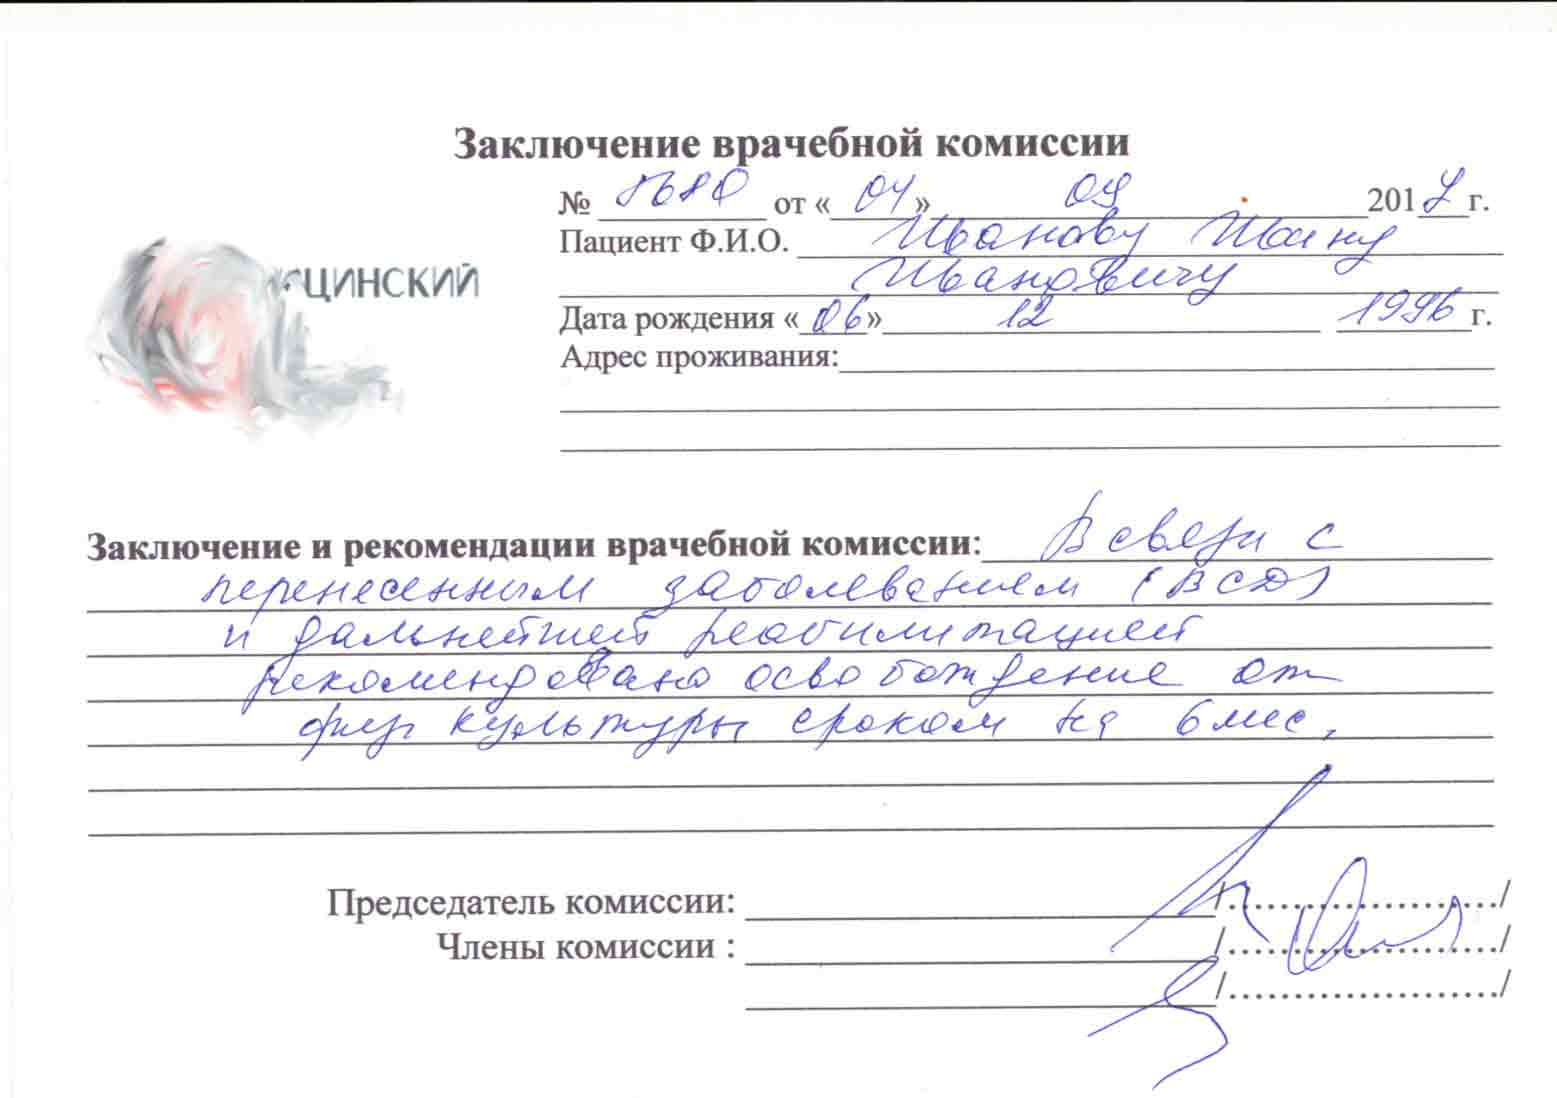 Заключение врачебной комиссии
№ от «04» 09 2017 г.
ЦИНСКИЙ
Пациент Ф.И.О. Иванову Ивану
Ивановичу
Дата рождения «06» 12 1996 г.
Адрес проживания:
Заключение и рекомендации врачебной комиссии: В связи с
перенесенным заболеванием (ВСД)
и дальнейшей реабилитацией
рекомендовано освобождение от
физ культуры сроком на 6 мес.
Председатель комиссии: /....................../
Члены комиссии : /....................../
/....................../